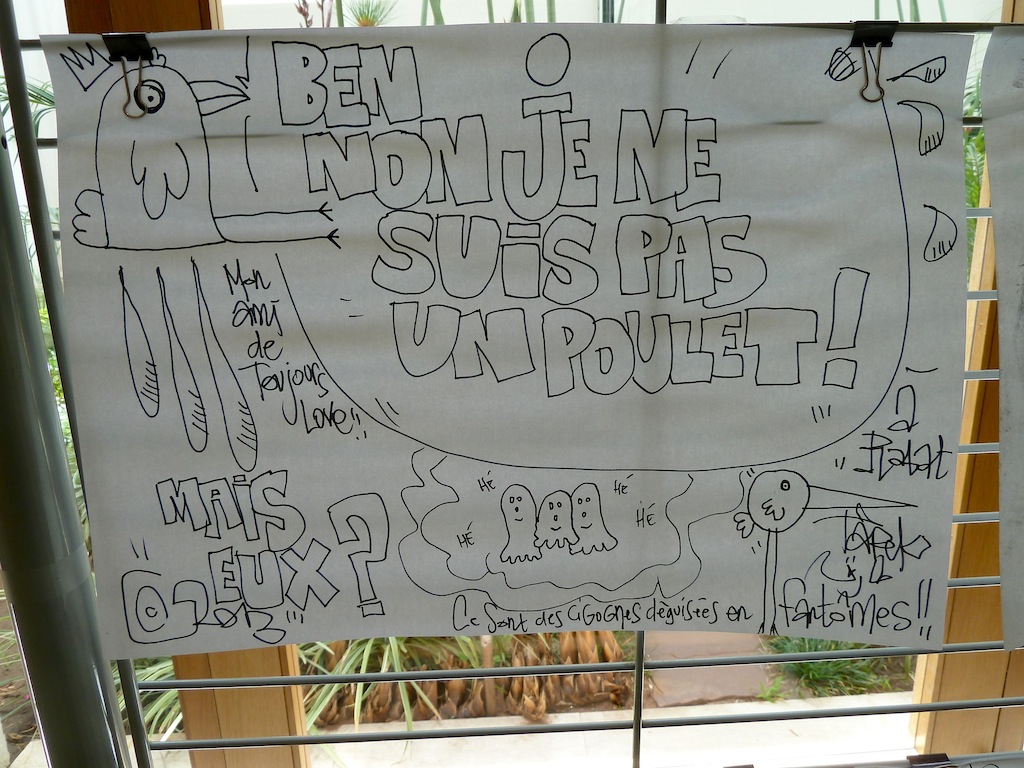 BEN
NON JE NE
SUiS PAS
UN POULET!
Mon
ami
de
Toujours
Love!!
MAiS
EUX?
HÉ
HÉ
HÉ
HÉ
Ce sont des CiGOGNES déguisées en fantômes!!
à
Rabat
2013